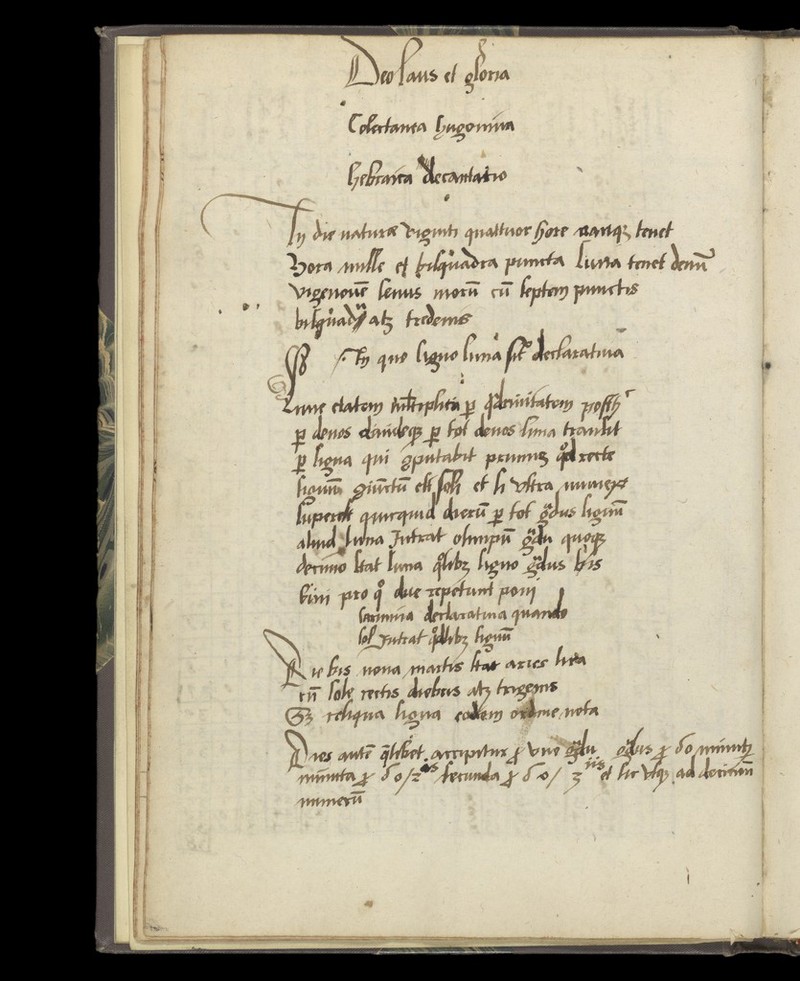 Deo laus et gloria
Colectanea hugonina
hebraica decantatio
In die naturæ viginti quattuor hore namq₃ tenet
Hora mille et bisquadra puncta luna tenet denu᷑
vigenoue᷑ senus moru᷑ cu᷑ septem punctis
bisquad atq₃ tredenis
In quo signo luna sit declarativa
Lune etatem multiplica p̱ qͣdernitatem posth᷑
p̱ denos dauideq₃ p̱ tot denos luna transit
p̱ signa qui putabit primu᷑ qd recte
signu᷑ giunctu᷑ est soli et si vltra numerꝰ
superest quicquid dieru᷑ p̱ tot gͣdus signu᷑
aliud luna Intrat olimpu᷑ gͣdu quoq₃
decimo stat luna qͦlibꝫ signo gͣdus bis
bini pro qͦ due repetunt poni
carmina declarativa quando
sol Intrat qͦdlibꝫ signu᷑
Die bis nona martis stat aries
cu᷑ sole rectis diebus atq₃ trigenis
Sꝫ reliqua signa eodem ordine nota
Dies aute᷑ qͥlibet accipitur ꝓ vno gͣdu gͣdus ꝓ 60 minutꝭ
minuta ꝓ 60 / 2ᵃˢ secunda ꝓ 60 / 3 et sic vsq₃ ad decimu᷑
numeru᷑